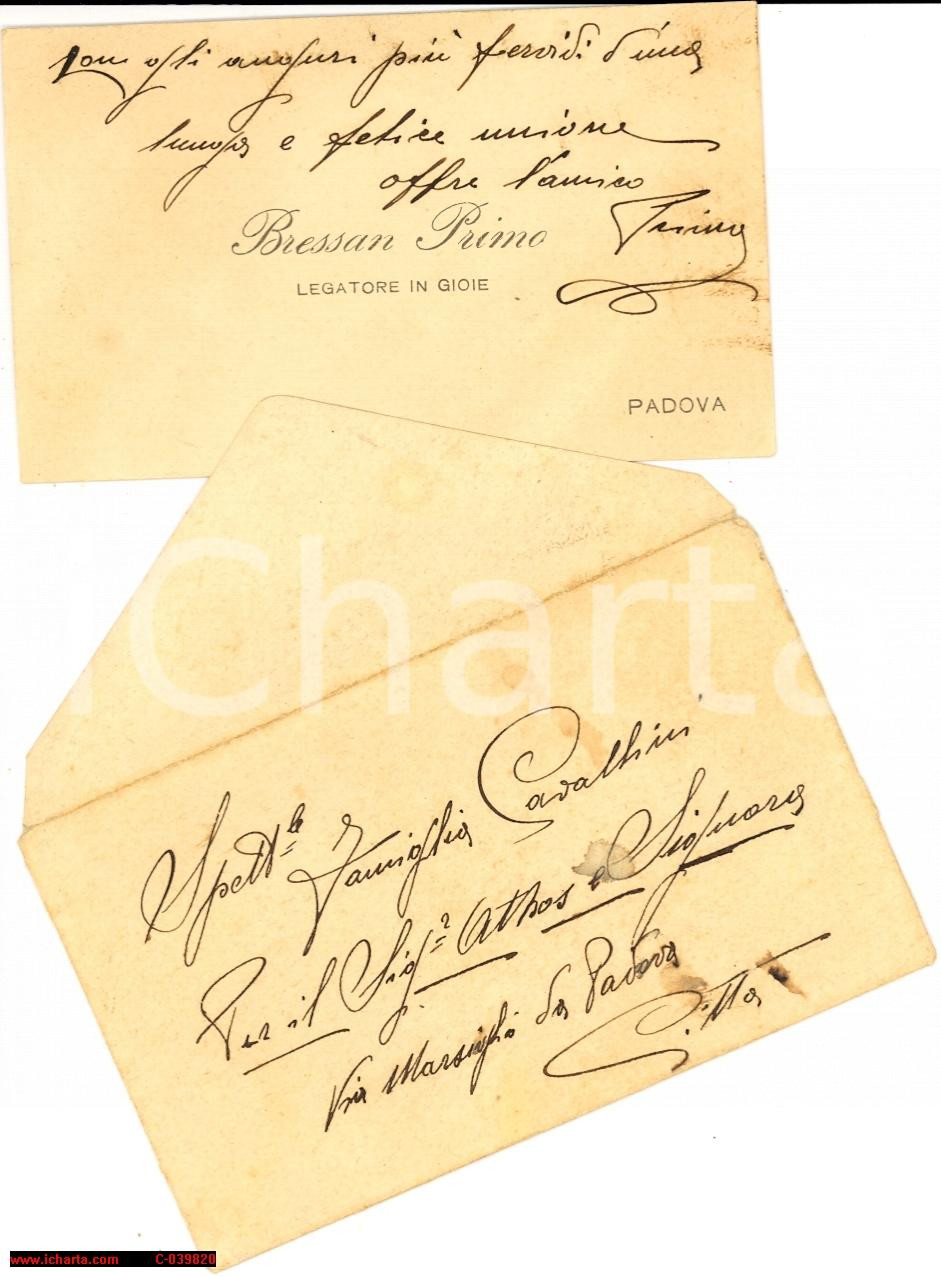 Con gli auguri più fervidi d'una
lunga e felice unione
offre l'amico
Primo
Bressan Primo
LEGATORE IN GIOIE
PADOVA
iCharta
Spett.le Famiglia Cavallini
Per il Sig.r Athos e Signora
Via Marsiglio da Padova
Città
www.icharta.com C-039820